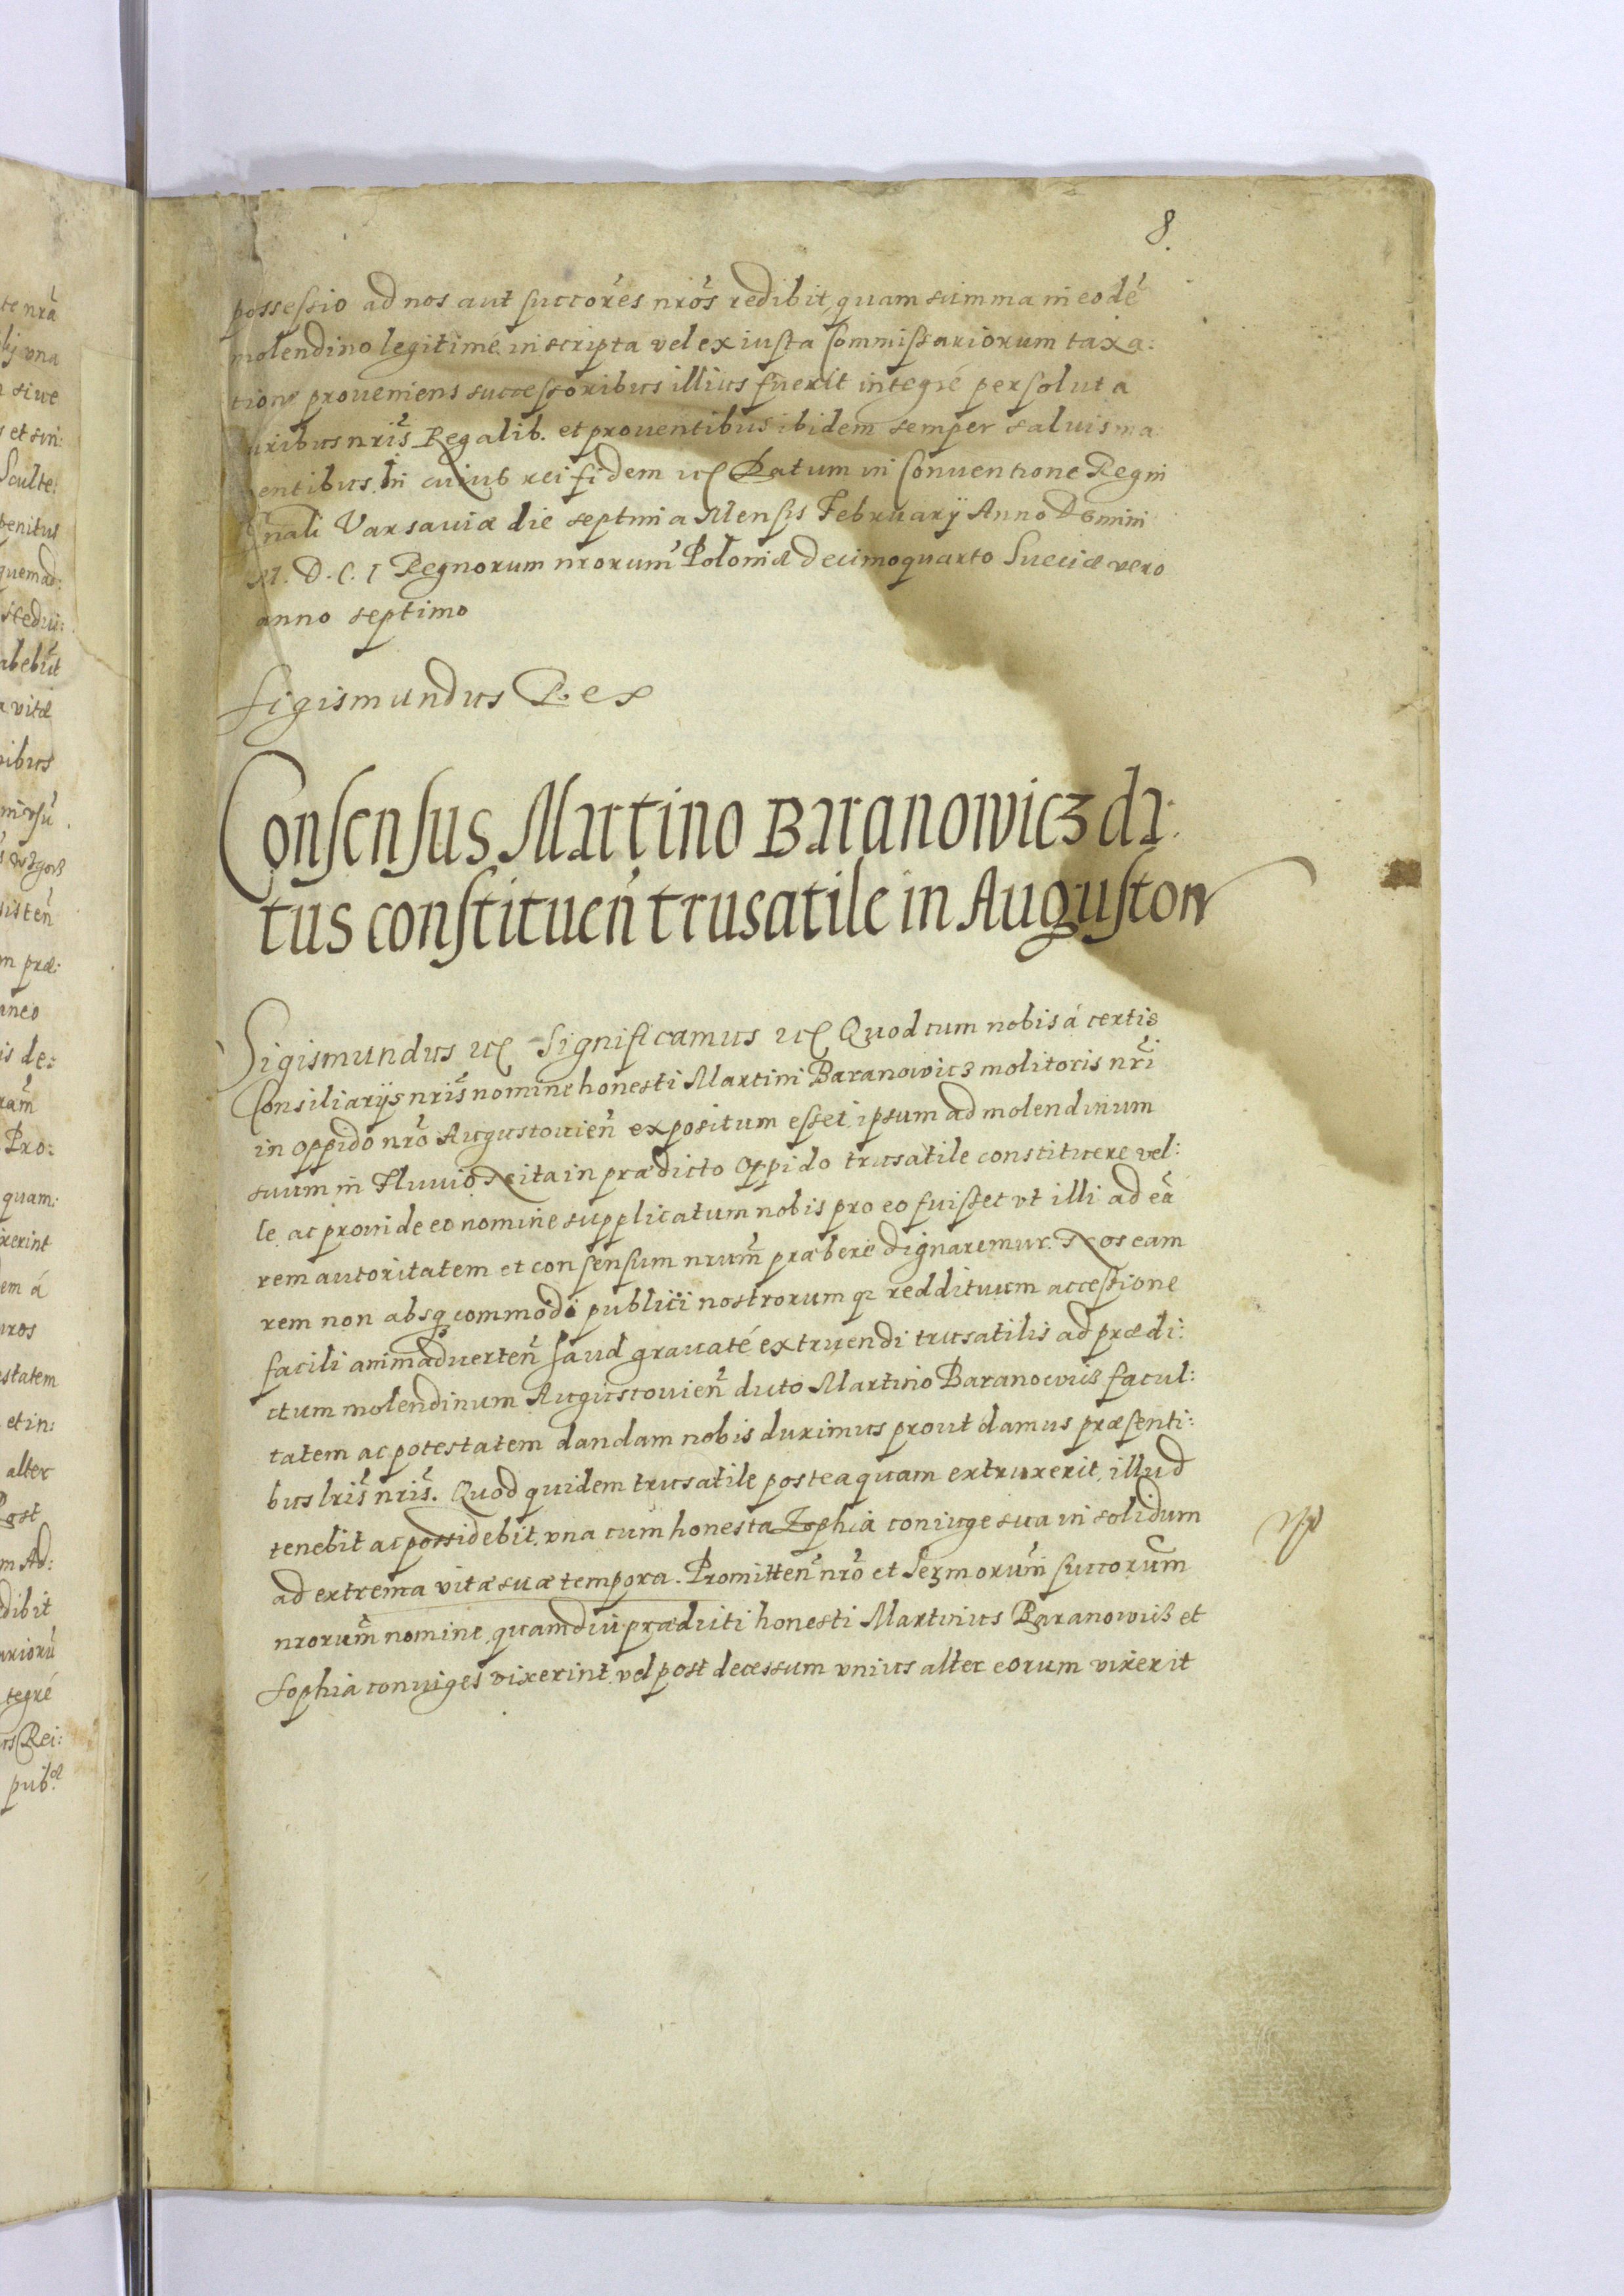 8.
possessio ad nos aut succores nros redibit, quam summa in eodē
molendino legitimé inscripta vel ex iusta Commissariorum taxa:
tione proueniens successoribus illius fuerit integré persoluta
iuribus nris Regalib. et prouentibus ibidem semper saluis ma:
entibus. In cuius rei fidem etc Datum in Conuentione Regni
gnali Varsauiæ die septima Mensis February Anno Domini
M. D. C. I Regnorum nrorum Poloniæ decimoquarto Sueciæ vero
anno septimo
Sigismundus Rex
Consensus Martino Baranowicz da:
tus constituen trusatile in Auguston
Sigismundus etc Significamus etc Quod cum nobis á certis
Consiliarys nris nomine honesti Martini Baranowicz molitoris nri
in oppido nro Augustouien expositum esset, ipsum ad molendinum
suum in Fluuio Neita in prædicto oppido trusatile constituere vel:
le ac proinde eo nomine supplicatum nobis pro eo fuisset vt illi ad eā
rem autoritatem et consensum nrum præbere dignaremur. Nos eam
rem non absq commodi publici nostrorumq reddituum accessione
facili animaduerten haud grauaté extruendi trusatilis ad prædi:
ctum molendinum Augustouien dicto Martino Baranowicz facul:
tatem ac potestatem dandam nobis duximus prout damus præsenti:
bus lris nris. Quod quidem trusatile posteaquam extruxerit, illud
tenebit ac possidebit, vna cum honesta Zophia coniuge sua in solidum
ad extrema vitæ suæ tempora. Promitten nro et Sermorum succorum
nrorum nomine, quamdiu prædicti honesti Martinus Baranowicz et
Sophia coniuges vixerint, vel post decessum vnius alter eorum vixerit